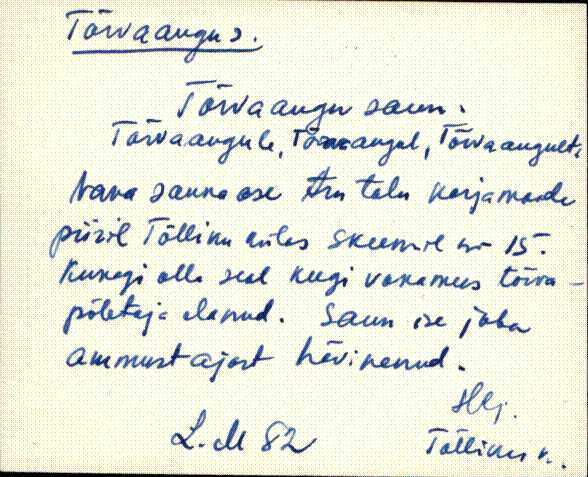 Tõrvaangus.
Tõrvaangu saun.
Tõrvaangule, Tõrvaangul, Tõrvaangult.
Vana saunaase Aru talu karjamaade
piiril Tõllinu külas skeemil nr 15.
Kunagi olla seal keegi vanamees tõrva-
põletaja elanud. Saun ise juba
ammust ajast hävinenud.
Hlj.
L. M 82